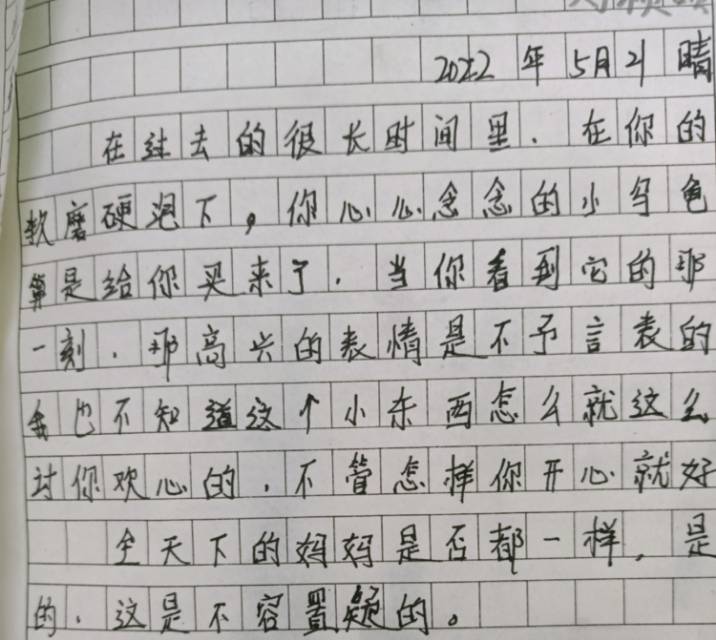 2022年5月21 晴
在过去的很长时间里.在你的
软磨硬泡下，你心心念念的小乌龟
算是给你买来了.当你看到它的那
一刻.那高兴的表情是不予言表的
我也不知道这个小东西怎么就这么
讨你欢心的.不管怎样你开心就好
全天下的妈妈是否都一样，是
的.这是不容置疑的。